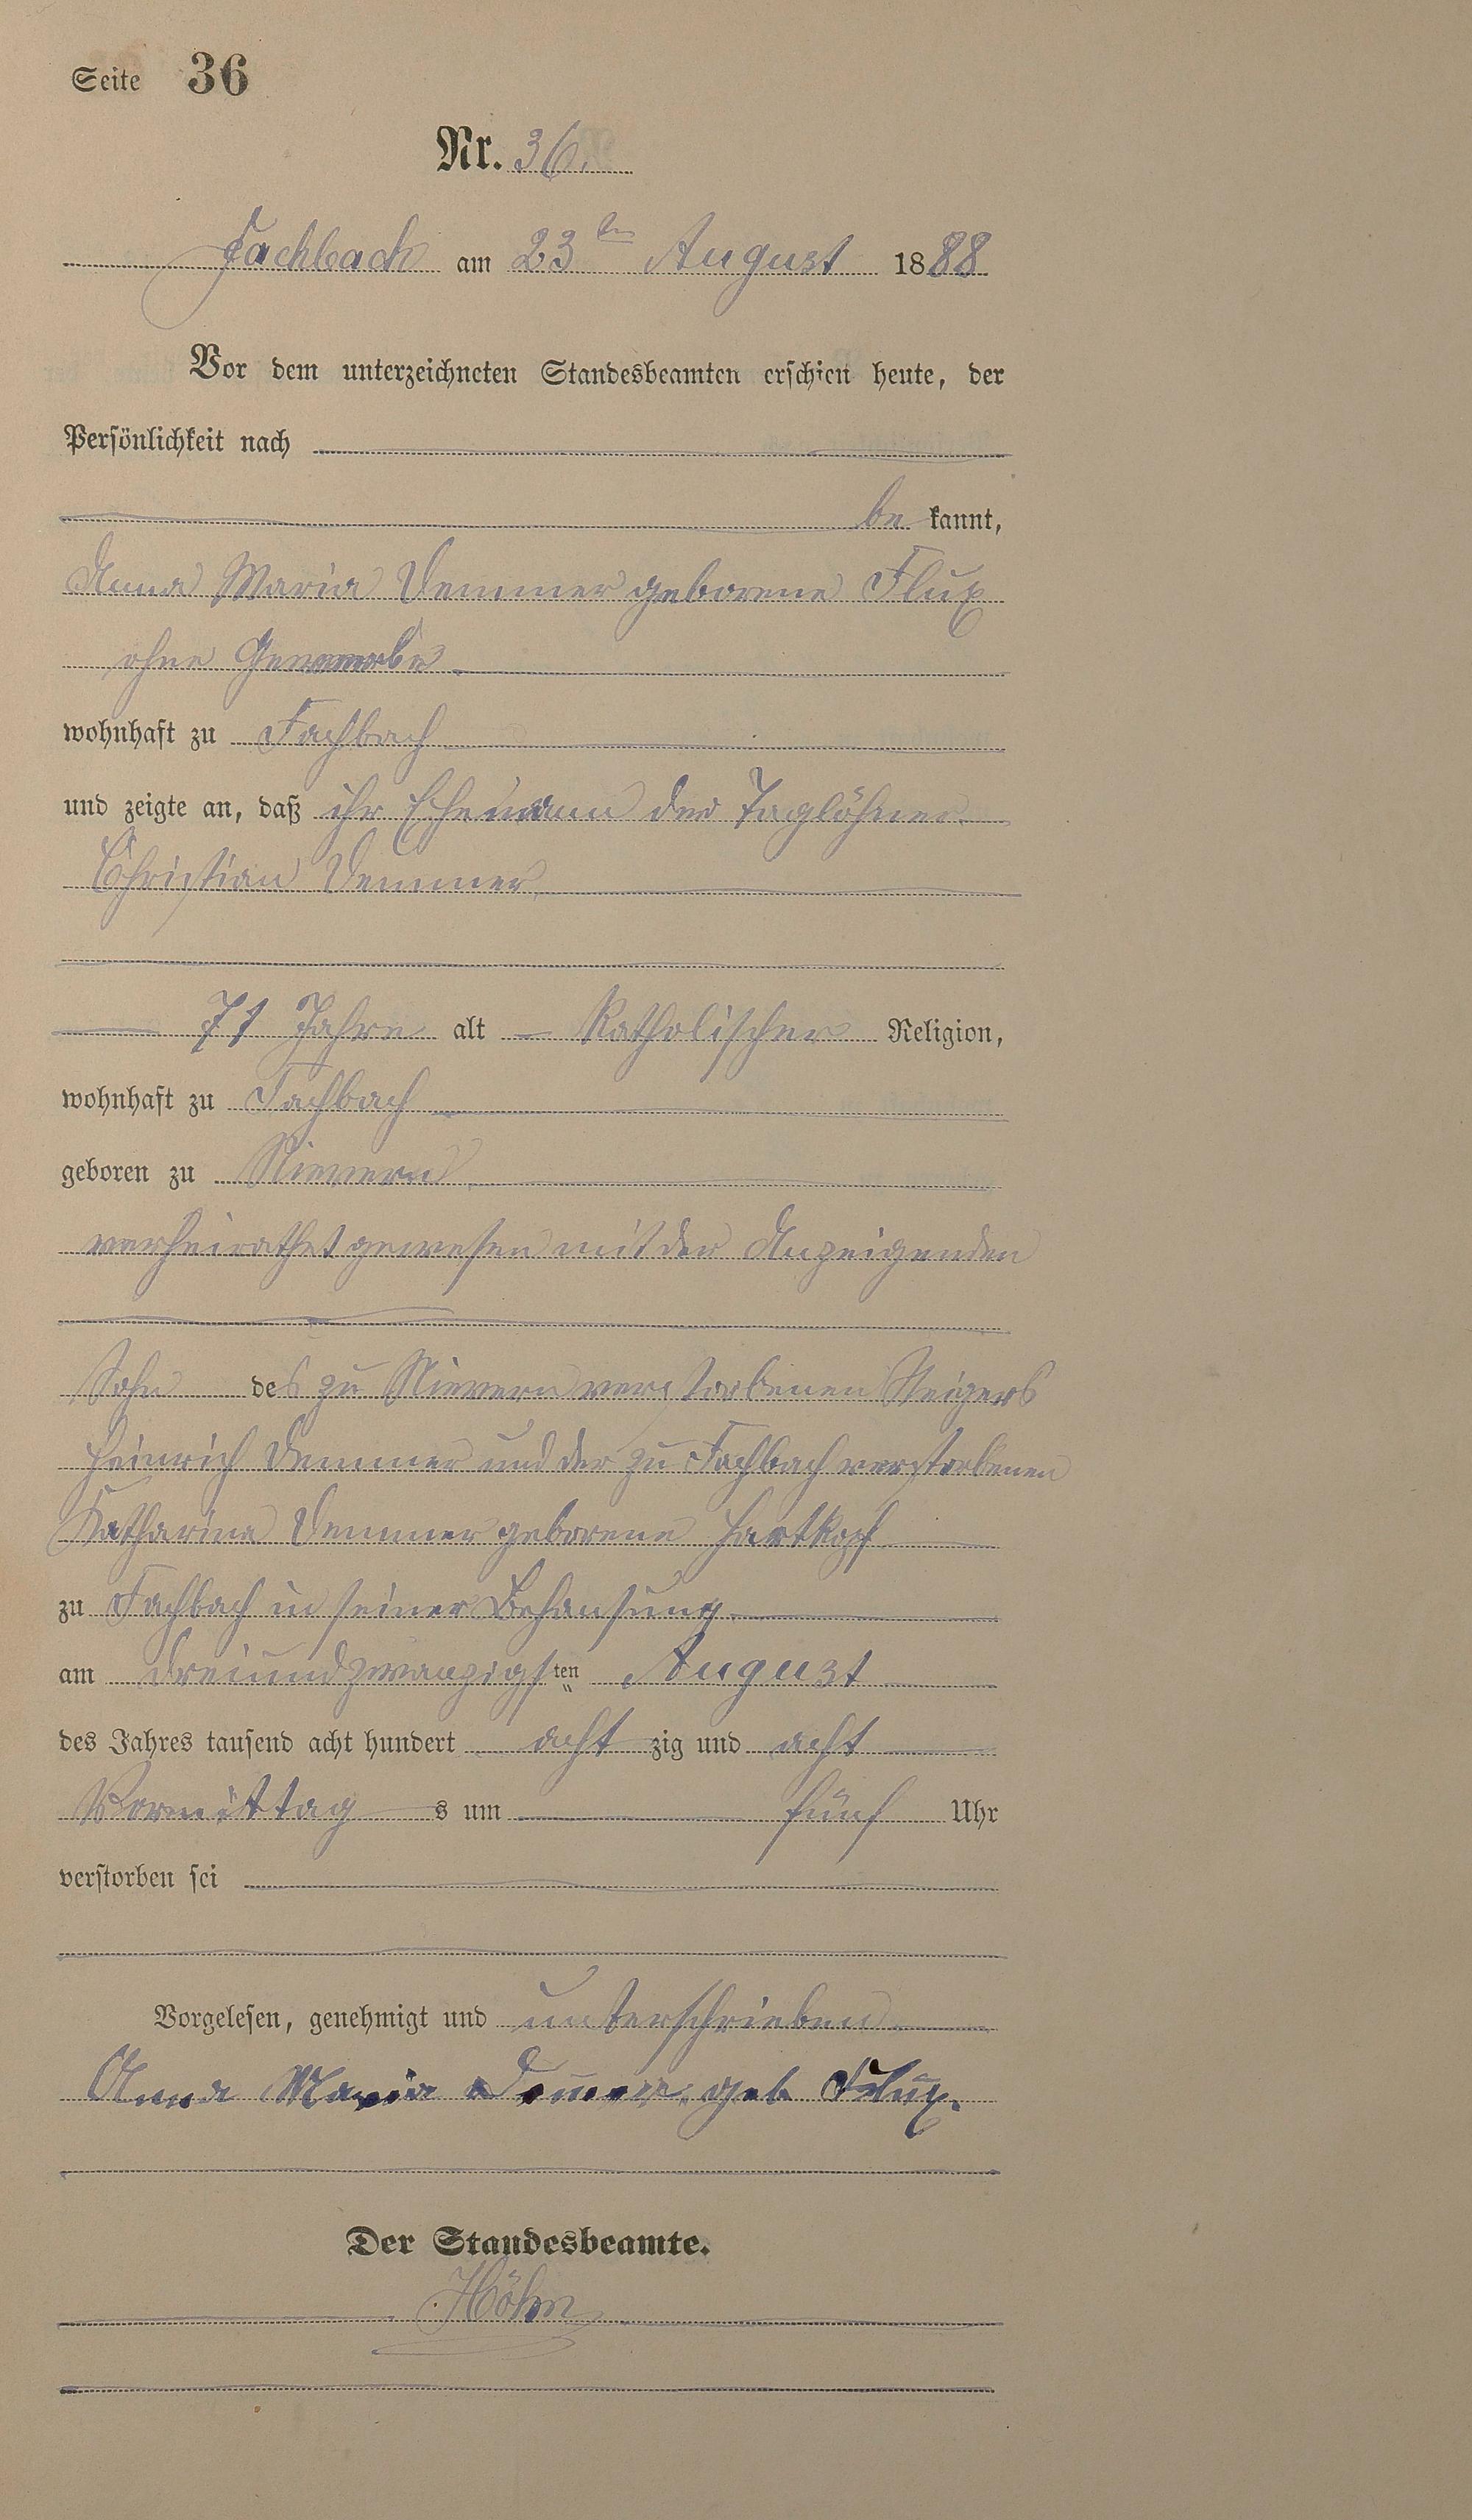 Seite 36
Nr. 36.
Fachbach am 23ten August 1888
Vor dem unterzeichneten Standesbeamten erschien heute, der
Persönlichkeit nach
be kannt,
Anna Maria Demmer geborene Flux
ohne Gewerbe
wohnhaft zu Fachbach
und zeigte an, daß ihr Ehemann der Taglöhner
Christian Demmer,
71 Jahre alt katholischer Religion,
wohnhaft zu Fachbach
geboren zu Nievern
verheirathet gewesen mit der Anzeigenden
Sohn des zu Nievern verstorbenen Steigers
Heinrich Demmer und der zu Fachbach verstorbenen
Katharina Demmer geborene Hartkopf
zu Fachbach in seiner Behausung
am dreiundzwanzigsten August
des Jahres tausend acht hundert acht zig und acht
Vormittag s um fünf Uhr
verstorben sei
Vorgelesen, genehmigt und unterschrieben
Anna Maria Demer geb Flux.
Der Standesbeamte.
Höhn